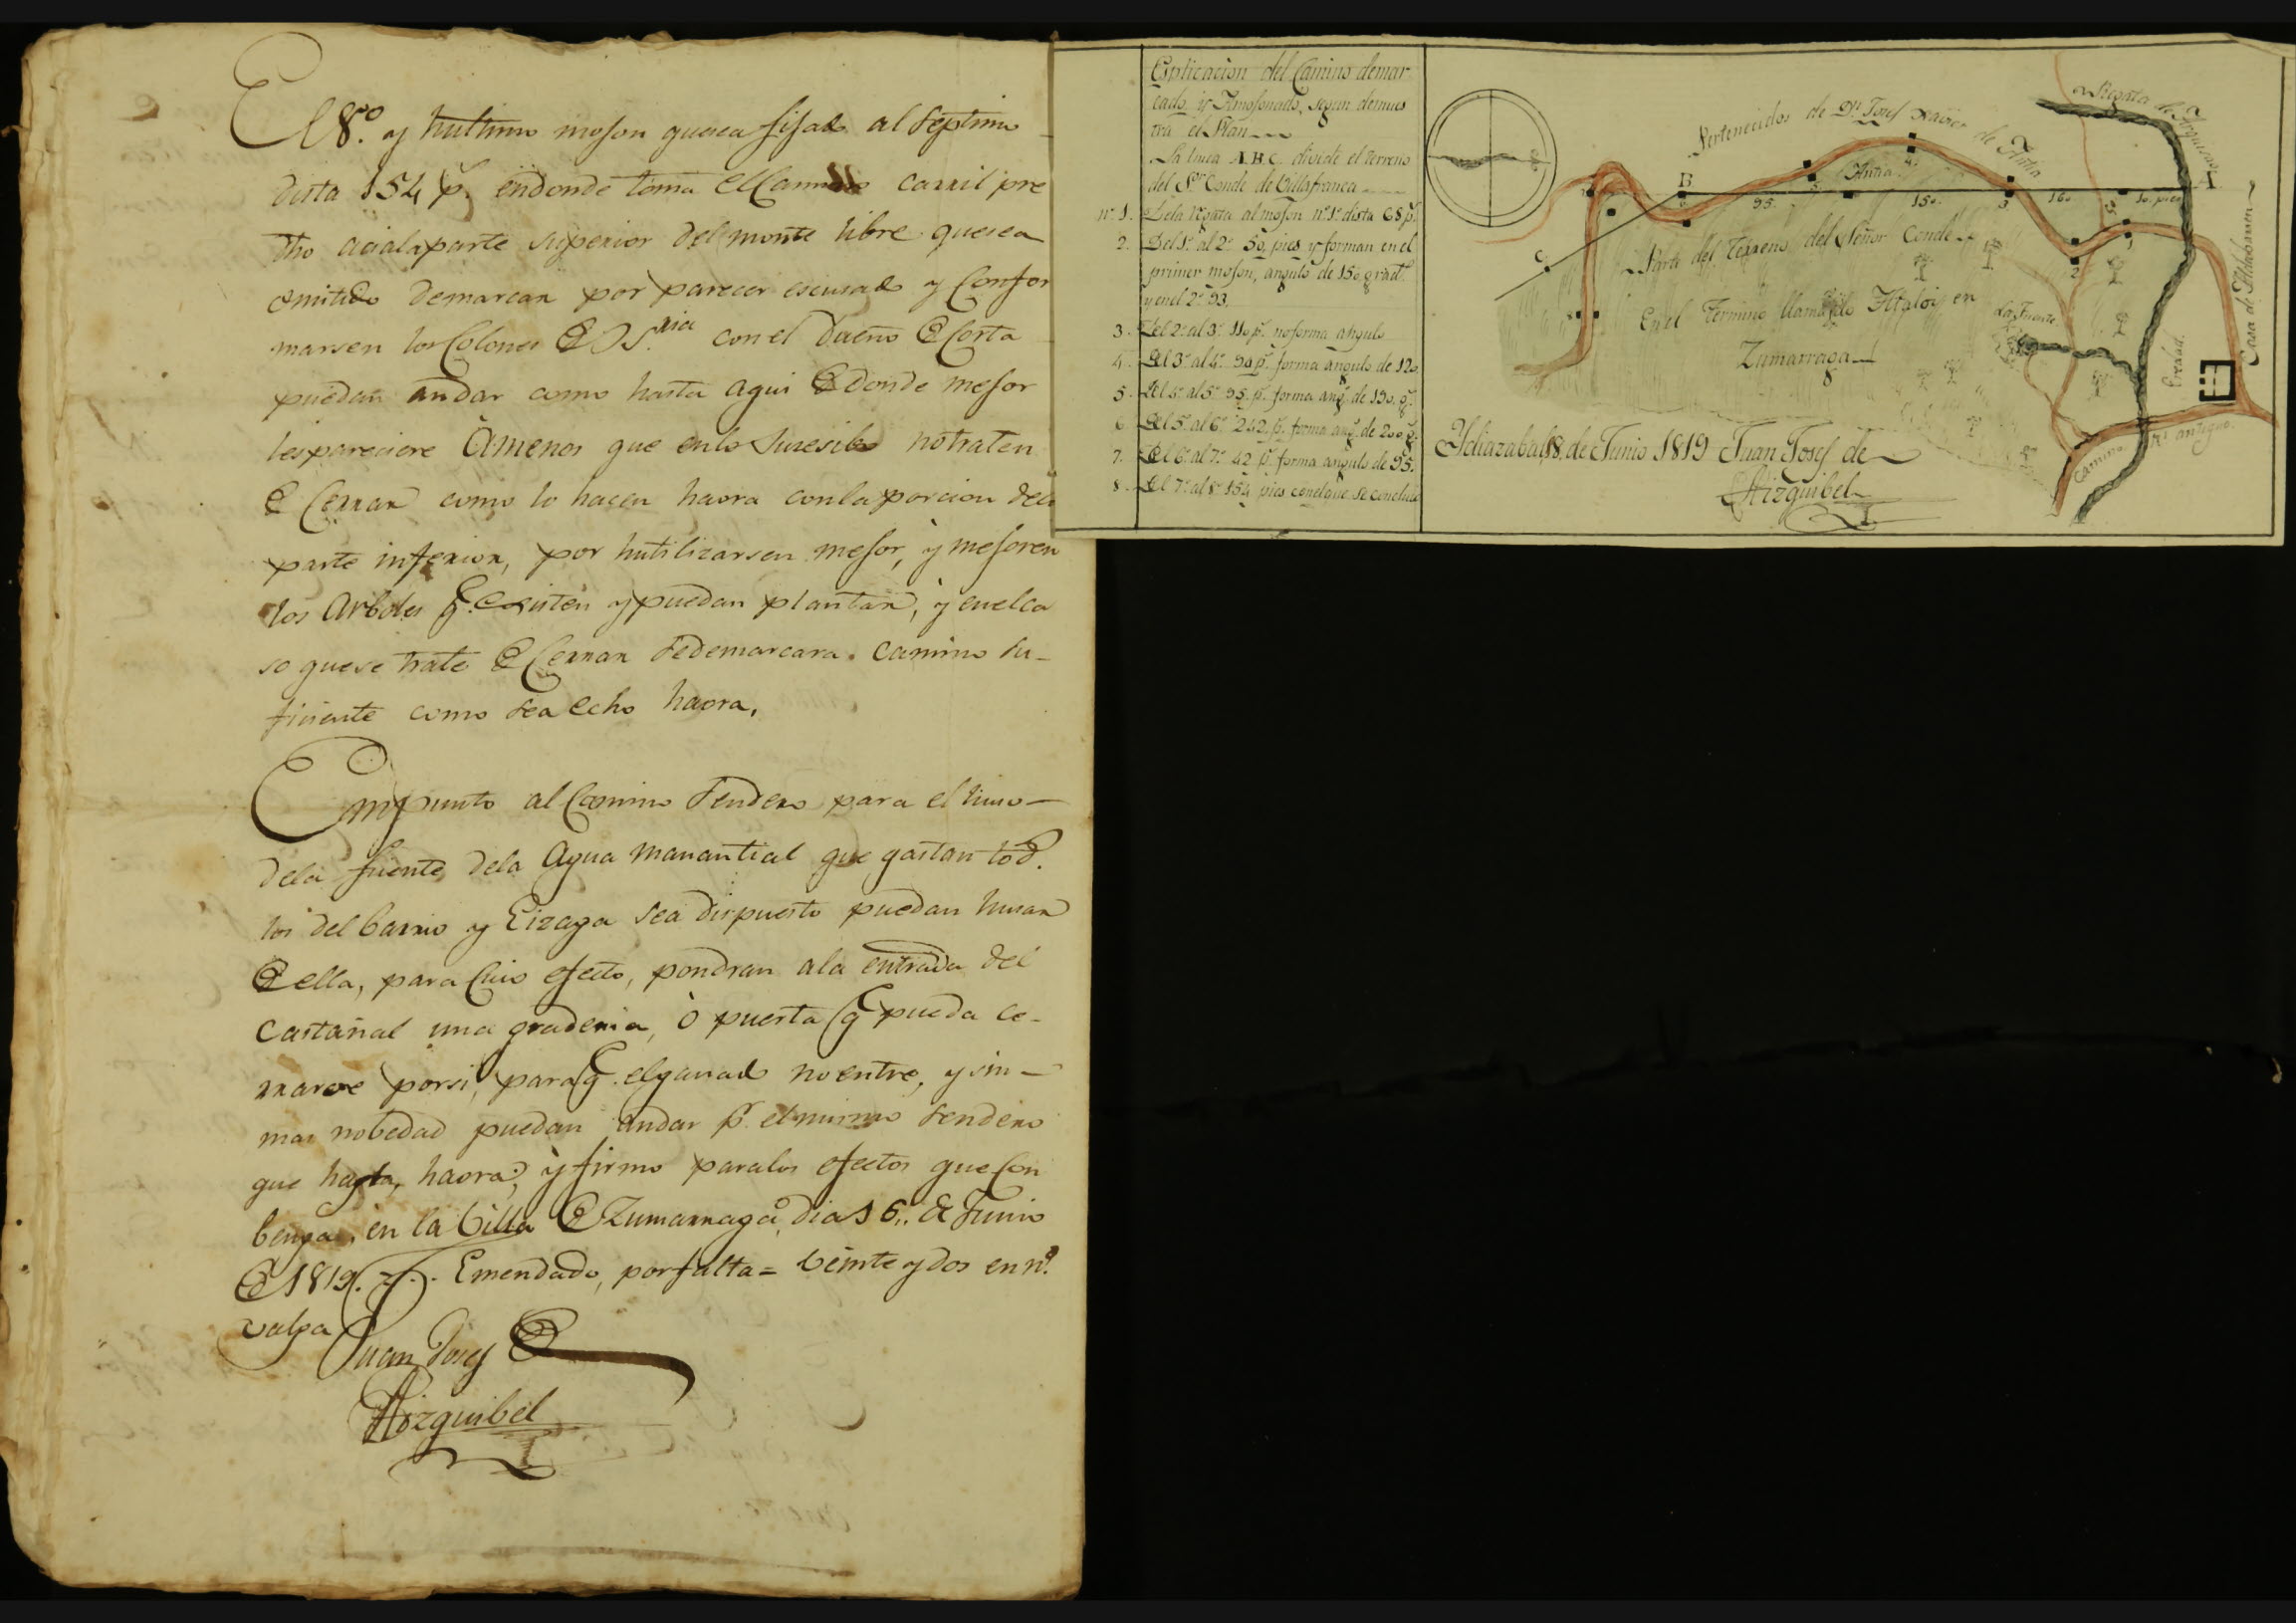 El 8.º y hultimo mojon quesea fijado al septimo
dista 154 p.s endonde toma el Camino carril pre
dho acialaparte superior del monte libre quesea
omitido demarcar por parecer escusado y Confor
marsen los Colonos de S.S.ria con el dueño de Corta
puedan andar como hasta aqui de donde mejor
lespareciere âmenos que enlo Sucesibo notraten
de Cerrar como lo hacen haora conlaporcion dela
parte inferior, por hutilizarsen mejor, ÿ mejoren
los Arboles q.e existen ypuedan plantar, ÿ enelca
so quese trate de Cerrar sedemarcara camino su-
ficiente como sea echo haora.
Empunto al Camino Sendero para el huso
dela fuente dela Agua manantial que gastan tod.
los del barrio y Eizaga sea dispuesto puedan husar
de ella, para Cuio efecto, pondran ala entrada del
castañal una graderia, ò puerta q.e pueda ce-
rrarse porsi, para q.e elganado noentre, y sin
mas nobedad puedan andar p.r elmismo sendero
que hasta haora; ÿ firmo paralos efectos que Con
benga, en la Villa de Zumarraga, dia 16,, de Junio
de 1819. Emendado, porfalta = veinte ydos en n.º
valga
Juan Josef de
Aizquibel
Esplicacion del Camino demar
cado, y Amojonado, segun demues
tra el Plan
La linea A.B.C. divide el terreno
del S.or Conde de Villafranca
nº. 1. Dela regata al mojon nº.1º. dista 68 p.s
2. Del 1º. al 2º. 50, pies y forman en el
primer mojon, angulo de 150 grad.s
y en el 2º. 93,
3. Del 2º. al 3º. 110 p.s noforma angulo
4. Del 3º. al 4º. 90 p.s forma angulo de 120
5. Del 4º. al 5º. 95. p.s forma ang.º de 190. g.s
6. Del 5º. al 6º. 242 p.s forma ang.º de 200 g.s
7. Del 6º. al 7º. 42 p.s forma angulo de 95.
8. Del 7º. al 8º. 154 pies conelque se concluie
Pertenecidos de D.n Josef Xavier de Antia
Regata de
A
B
C
Antia
95
150
3
160
50
10 pies
4
5
2
1
Parte del Terreno del Señor Conde
En el Termino llamado Altaloi, en
Zumarraga
La Fuente
Eredad.
Casa de
Camino R.l antiguo.
Ydiazabal 18. de Junio 1819 Juan Josef de
Aizquibel